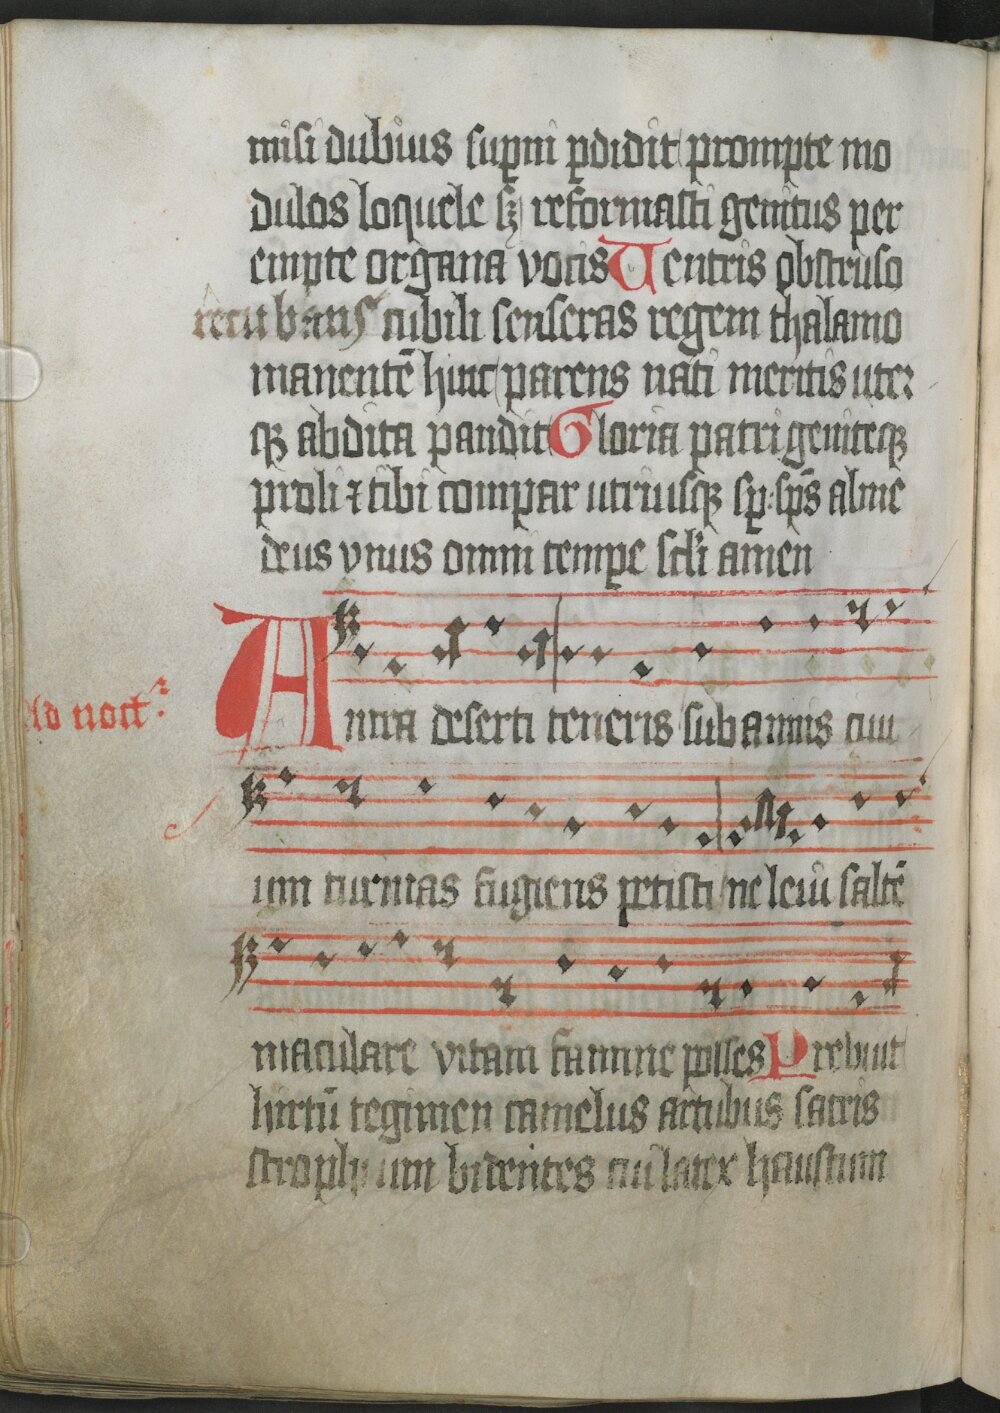 misi dubius sup̱ni p̱didit prompte mo
dulos loquele sꝫ reformasti genitus per
empte organa vocis Uentris obstruso
recubans cubili senseras regem thalamo
manentē hinc parens nati meritis uter
qꝫ abdita pandit Gloria patri geniteqꝫ
proli ⁊ tibi compar utriusqꝫ sp̱ sp̄s alme
deus vnus omni temp̱e scl̄i amen
Antra deserti teneris sub annis ciui
Ad noct
um turmas fugiens petisti ne leui saltē
maculare vitam famine posses Prebuit
hirtū tegimen camelus artubus sacris
strophium bidentes cui latex haustum